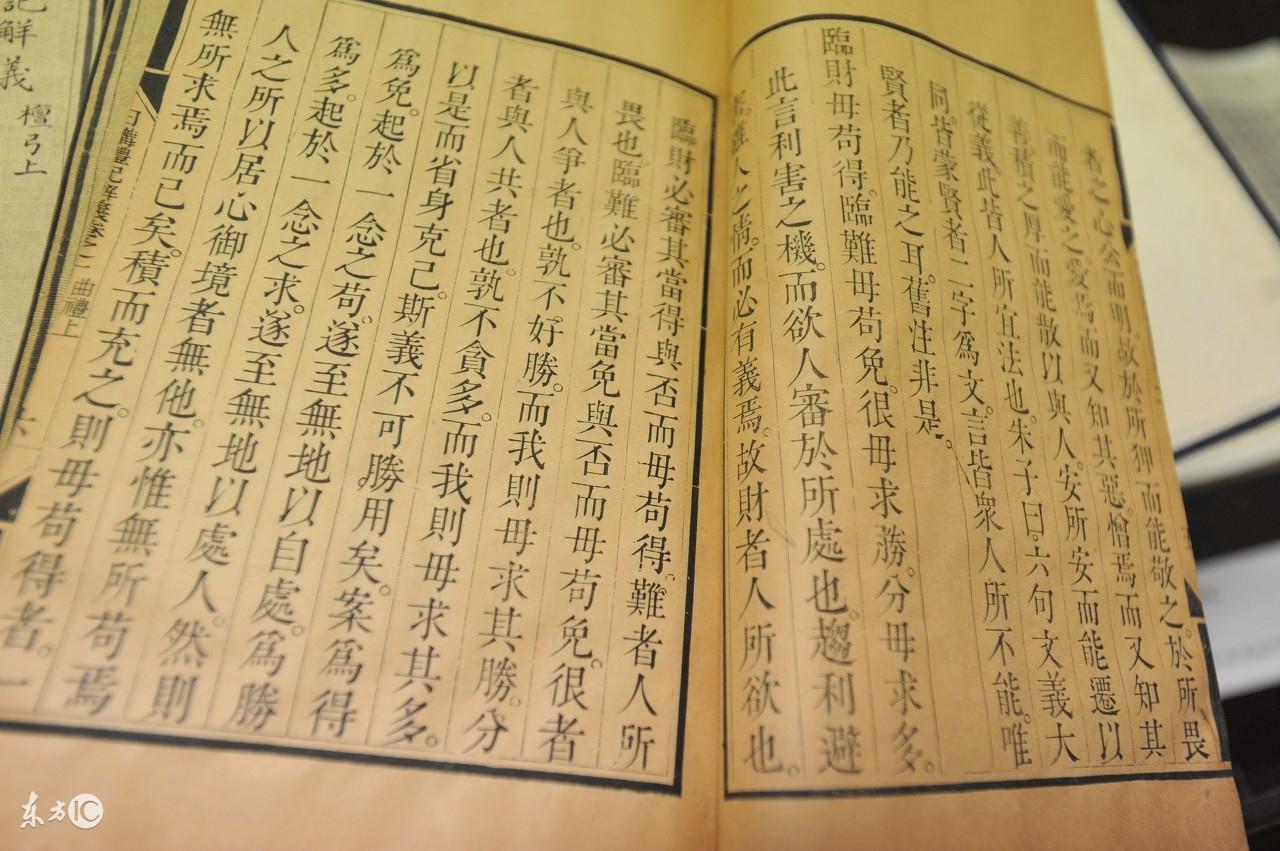 者之心公而明故於所狎而能敬之於所畏
而能愛之愛焉而又知其惡憎焉而又知其
善積之厚而能散以與人安所安而能遷以
從義此皆人所宜法也朱子曰六句文義大
同皆蒙賢者二字為文言皆衆人所不能唯
賢者乃能之耳舊注非是
臨財毋苟得臨難毋苟免很毋求勝分毋求多
此言利害之機而欲人審於所處也趨利避
人之情而必有義焉故財者人所欲也
臨財必審其當得與否而毋苟得難者人所
畏也臨難必審其當免與否而毋苟免很者
與人爭者也孰不好勝而我則毋求其勝分
者與人共者也孰不貪多而我則毋求其多
以是而省身克己斯義不可勝用矣案為得
為免起於一念之苟遂至無地以自處為勝
為多起於一念之求遂至無地以處人然則
人之所以居心御境者無他亦惟無所苟焉
無所求焉而已矣積而充之則毋苟得者一
日講禮記解義卷之 曲禮上
記解義 檀弓上
东方IC